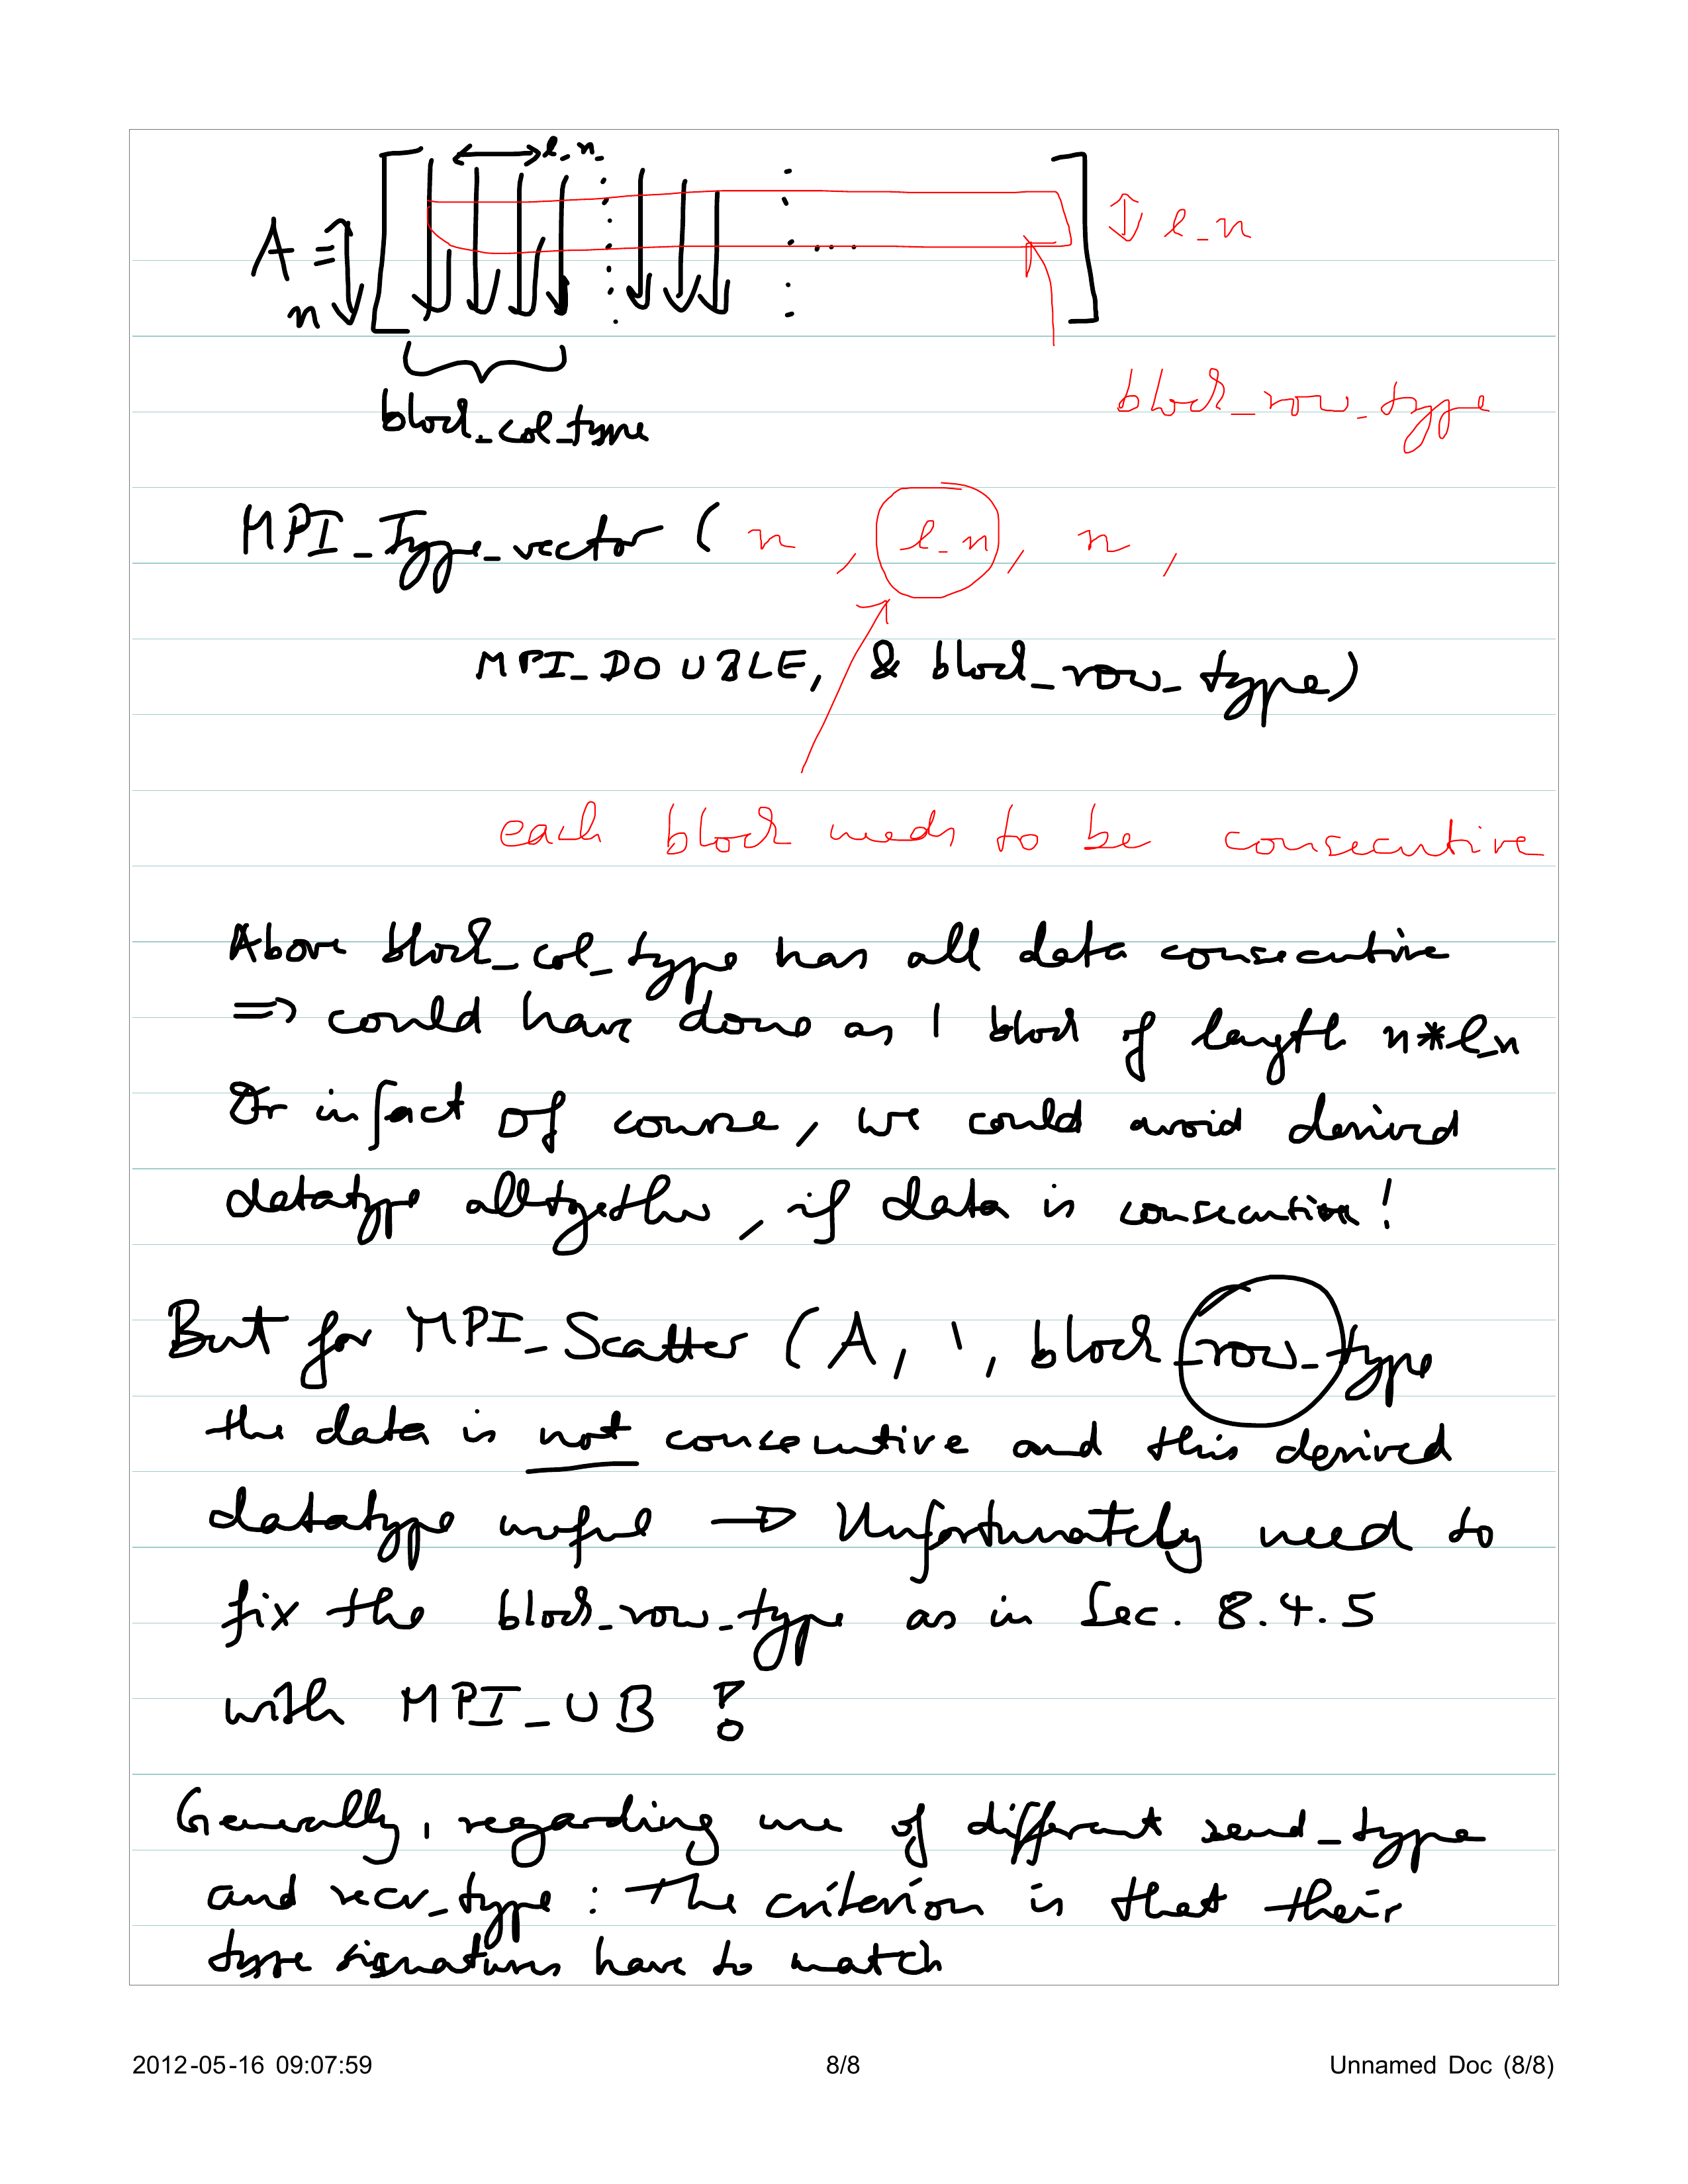 l_n
A =
n
l_n
block_row_type
block_col_type
MPI_Type_vector ( n , l_n , n ,
MPI_DOUBLE, & block_row_type)
each block needs to be consecutive
Above block_col_type has all data consecutive
=> could have done as 1 block of length n*l_n
Or in fact of course, we could avoid derived
datatype alltogether, if data is consecutive!
But for MPI_Scatter (A, 1, block_row_type
the data is not consecutive and this derived
datatype useful → Unfortunately need to
fix the block_row_type as in Sec. 8.4.5
with MPI_UB !
Generally, regarding use of different send_type
and recv_type : The criterion is that their
type signatures have to match
2012-05-16 09:07:59 8/8 Unnamed Doc (8/8)